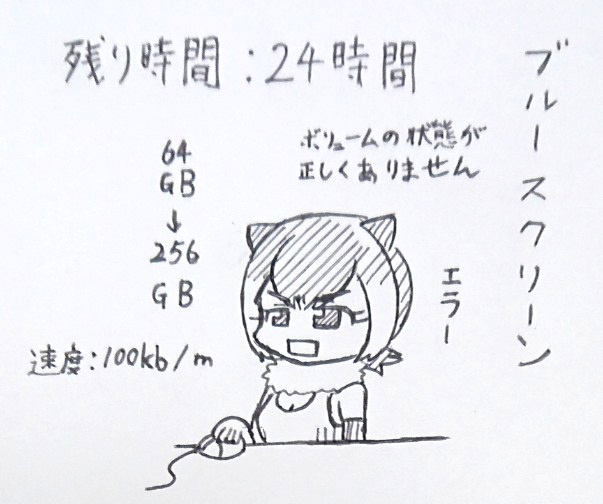 残り時間：24時間
ブルースクリーン
ボリュームの状態が
正しくありません
64
GB
↓
256
GB
エラー
速度：100kb/m